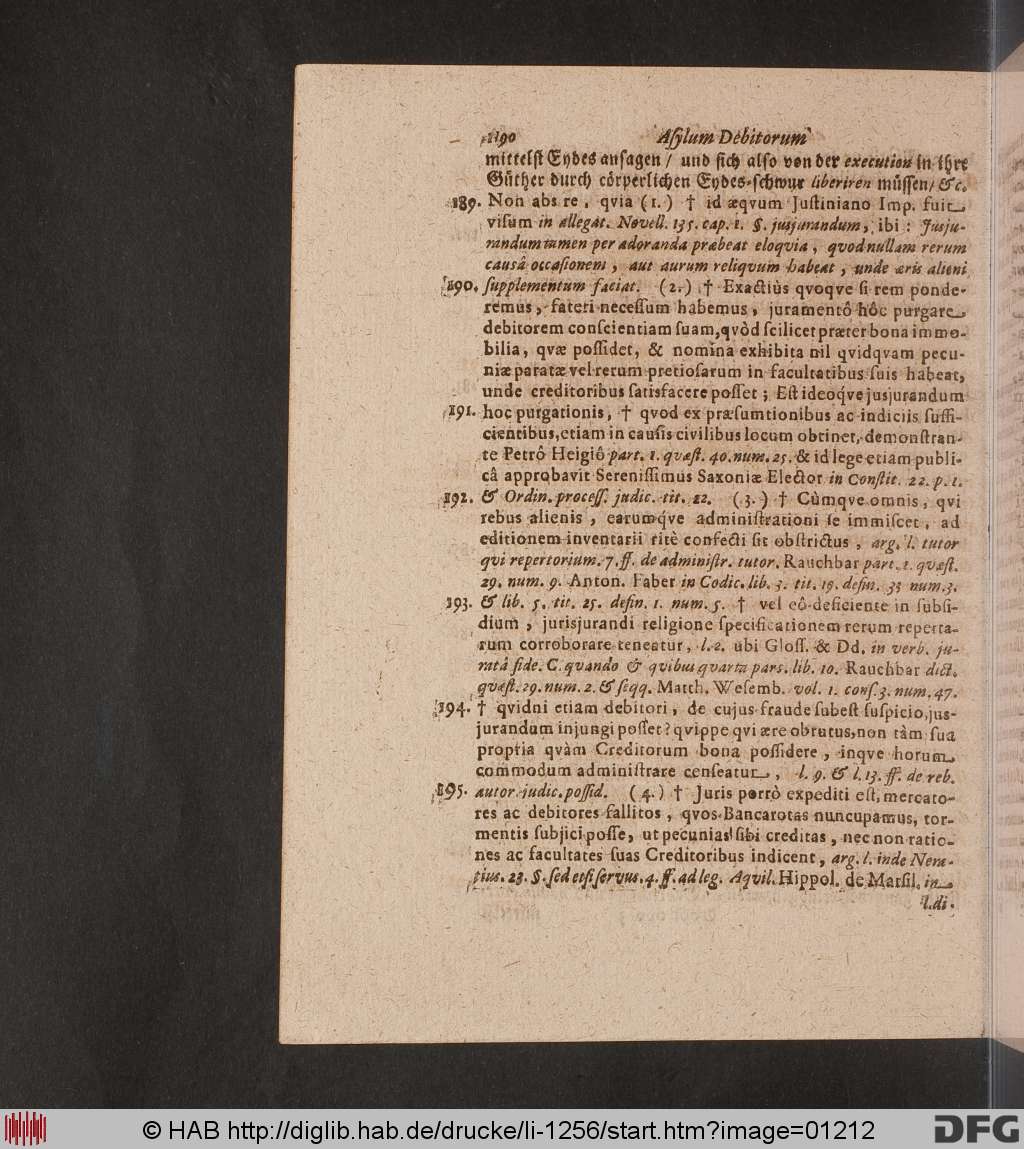 1190 Asylum Debitorum
mittelst Eydes ansagen / und sich also von der execution in ihre
Güther durch cörperlichen Eydes-schwur liberiren müssen / &c.
189. Non abs re, qvia (1.) † id æqvum Justiniano Imp. fuit
visum in allegat. Novell. 135. cap. 1. §. jusjurandum, ibi: Jusju-
randum tamen per adoranda præbeat eloqvia, qvod nullam rerum
causâ occasionem, aut aurum reliqvum habeat, unde æris alieni
190. supplementum faciat. (2.) † Exactiùs qvoqve si rem ponde-
remus, fateri necessum habemus, juramentô hôc purgare
debitorem conscientiam suam, qvòd scilicet præter bona immo-
bilia, qvæ possidet, & nomina exhibita nil qvidqvam pecu-
niæ paratæ vel rerum pretiosarum in facultatibus suis habeat,
unde creditoribus satisfacere posset; Est ideoq́ve jusjurandum
191. hoc purgationis, † qvod ex præsumtionibus ac indiciis suffi-
cientibus, etiam in causis civilibus locum obtinet, demonstran-
te Petrô Heigiô part. 1. qvæst. 40. num. 25. & id lege etiam publi-
câ approbavit Serenissimus Saxoniæ Elector in Constit. 22. p. 1.
192. & Ordin. process. judic. tit. 22. (3.) † Cùmqve omnis, qvi
rebus alienis, earumq́ve administrationi se immiscet, ad
editionem inventarii ritè confecti sit obstrictus, arg. l. tutor
qvi repertorium. 7. ff. de administr. tutor. Rauchbar part. 1. qvæst.
29. num. 9. Anton. Faber in Codic. lib. 3. tit. 19. defin. 33 num. 3.
193. & lib. 5. tit. 25. defin. 1. num. 5. † vel eô deficiente in subsi-
dium, jurisjurandi religione specificationem rerum reperta-
rum corroborare teneatur, l. 2. ubi Gloss. & Dd. in verb. ju-
ratâ fide. C. qvando & qvibus qvarta pars. lib. 10. Rauchbar dict.
qvæst. 29. num. 2. & seqq. Matth. Wesemb. vol. 1. cons. 3. num. 47.
194. † qvidni etiam debitori, de cujus fraude subest suspicio, jus-
jurandum injungi posset? qvippe qvi ære obrutus, non tàm sua
propria qvàm Creditorum bona possidere, inqve horum
commodum administrare censeatur, l. 9. & l. 13. ff. de reb.
195. autor. judic. possid. (4.) † Juris porrò expediti est, mercato-
res ac debitores fallitos, qvos Bancarotas nuncupamus, tor-
mentis subjici posse, ut pecunias sibi creditas, nec non ratio-
nes ac facultates suas Creditoribus indicent, arg. l. inde Nera-
tius. 23. §. sed etsi servus. 4. ff. ad leg. Aqvil. Hippol. de Marsil. in
l. di-
© HAB http://diglib.hab.de/drucke/li-1256/start.htm?image=01212
DFG